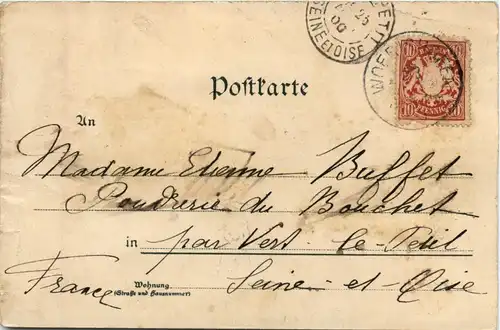 PETIT
25
00
SEINE ET OISE
10 10
PFENNIG
10 10
Postkarte
An
Madame Etienne Buffet
Poudrerie du Bouchet
in par Vert-le-Petit
Seine-et-Oise
France
Wohnung
(Straße und Hausnummer)